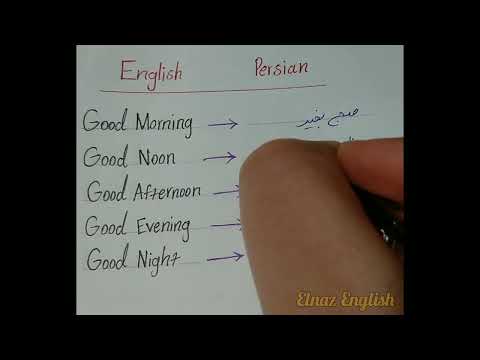 English Persian
Good Morning → صبح بخیر
Good Noon →
Good Afternoon →
Good Evening →
Good Night →
Elnaz English